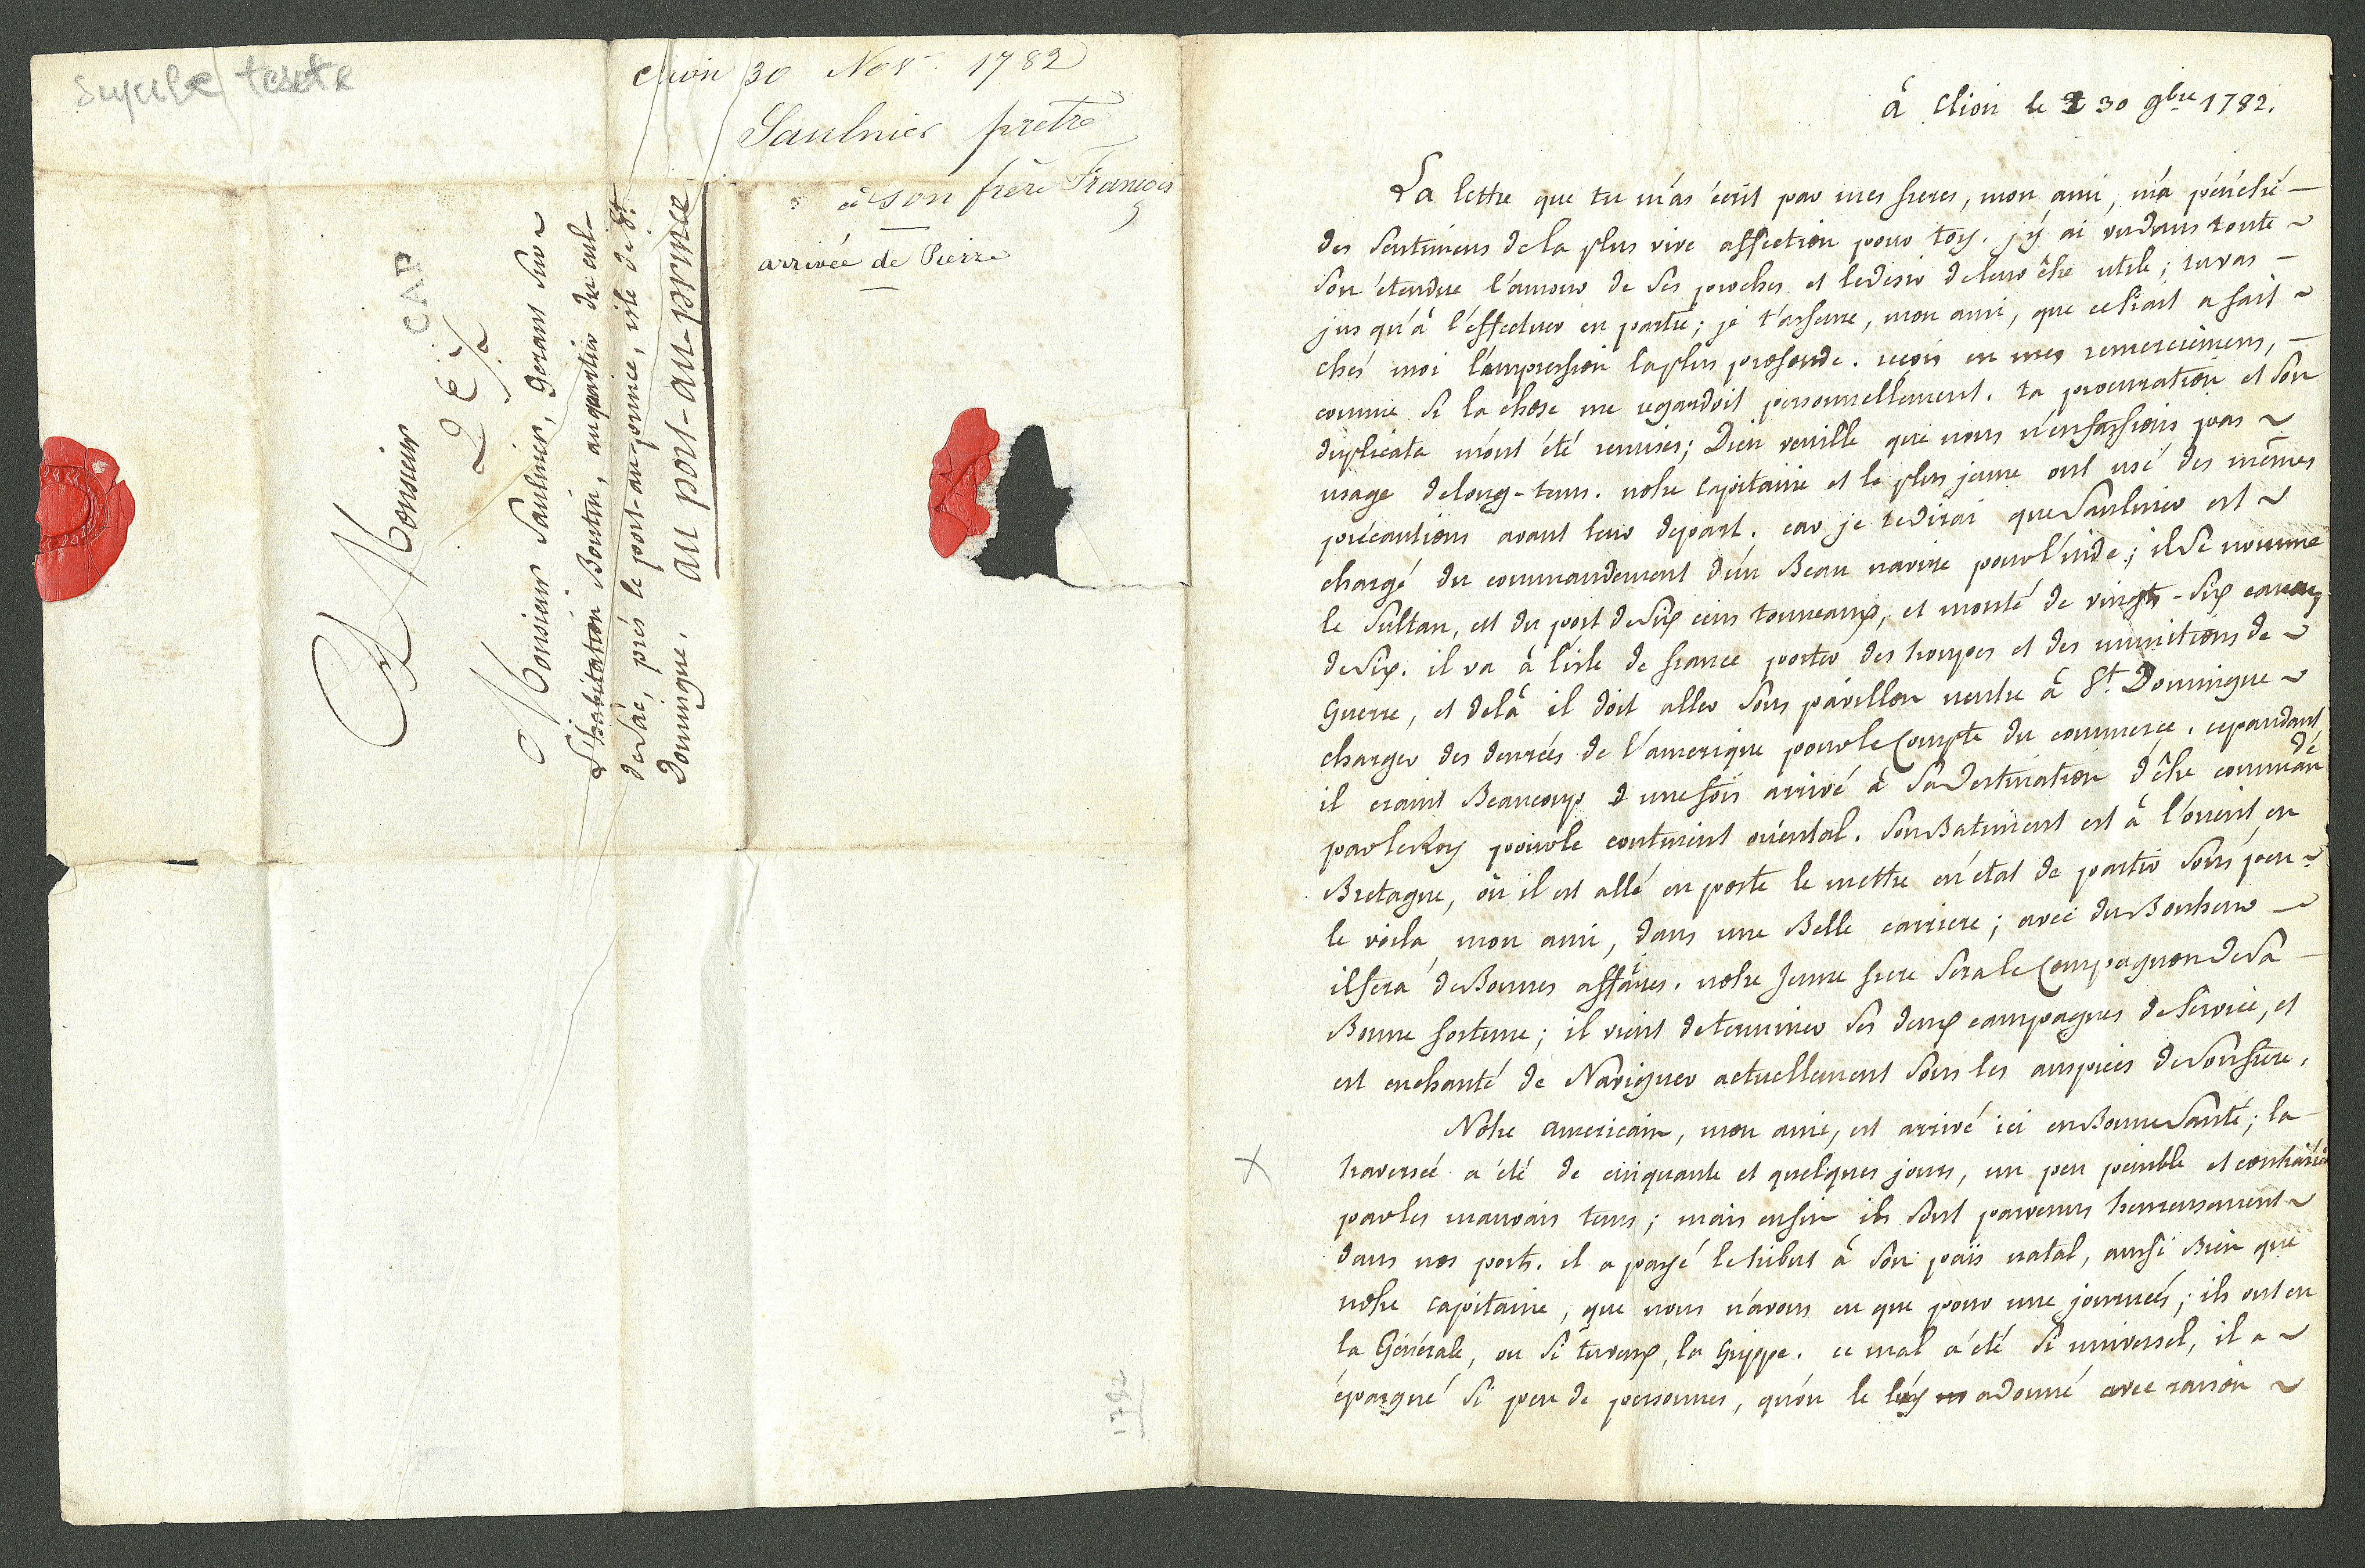 Superbe texte
Clion 30 Nov. 1782
Saulnier prêtre
à son frère François
arrivée de Pierre
CAP
A Monsieur
Monsieur Saulnier, Gerant sur
L'habitation Boutin, au quartier du cul-
de sac, prés le port-au-prince, isle de St.
Domingue. au port-au-prince
1782
à Clion le 30 9bre 1782.
La lettre que tu m'as écrit par mes freres, mon ami, m'a pénétré
des sentimens de la plus vive affection pour toy. j'y ai vu dans toute
son étendue l'amour de ses proches et le desir de leur être utile; tu vas
jusqu'à l'effectuer en partie; je t'assure, mon ami, que ce trait a fait
chés moi l'impression la plus profonde. reçois en mes remerciemens,
comme si la chose me regardoit personnellement. ta procuration et son
duplicata m'ont été remises; Dieu veuille que nous n'en fassions pas
usage de long-tems. notre capitaine et le plus jeune ont usé des mêmes
précautions avant leur depart. car je te dirai que Saulnier est
chargé du commandement d'un Beau navire pour l'inde; il se nomme
le Sultan, est du port de six cens tonneaux, et monté de vingt-six canons
de six. il va à l'isle de france porter des troupes et des munitions de
Guerre, et delà il doit aller sous pavillon neutre à St. Domingue
charger des denrées de l'amerique pour le Compte du commerce. cependant
il craint Beaucoup d'une fois arrivé à sa destination d'être commandé
par le Roy pour le continent oriental. son Batiment est à l'orient en
Bretagne, où il est allé en poste le mettre en état de partir sous peu
le voila, mon ami, dans une Belle carriere; avec du Bonheur
il fera de Bonnes affaires. notre Jeune frere sera le Compagnon de sa
Bonne fortune; il vient de terminer ses deux campagnes de service, et
est enchanté de Naviguer actuellement sous les auspices de son frere.
Notre americain, mon ami, est arrivé ici en Bonne santé; la
traversée a été de cinquante et quelques jours, un peu penible et contrariée
par les mauvais tems; mais enfin ils sont parvenus heureusement
dans nos ports. il a payé le tribut à son païs natal, aussi Bien que
notre capitaine, que nous n'avons eu que pour une journeé; ils ont eu
la Générale, ou si tu veux, la Grippe. ce mal a été si universel, il a
épargné si peu de personnes, qu'on le luy a donné avec raison